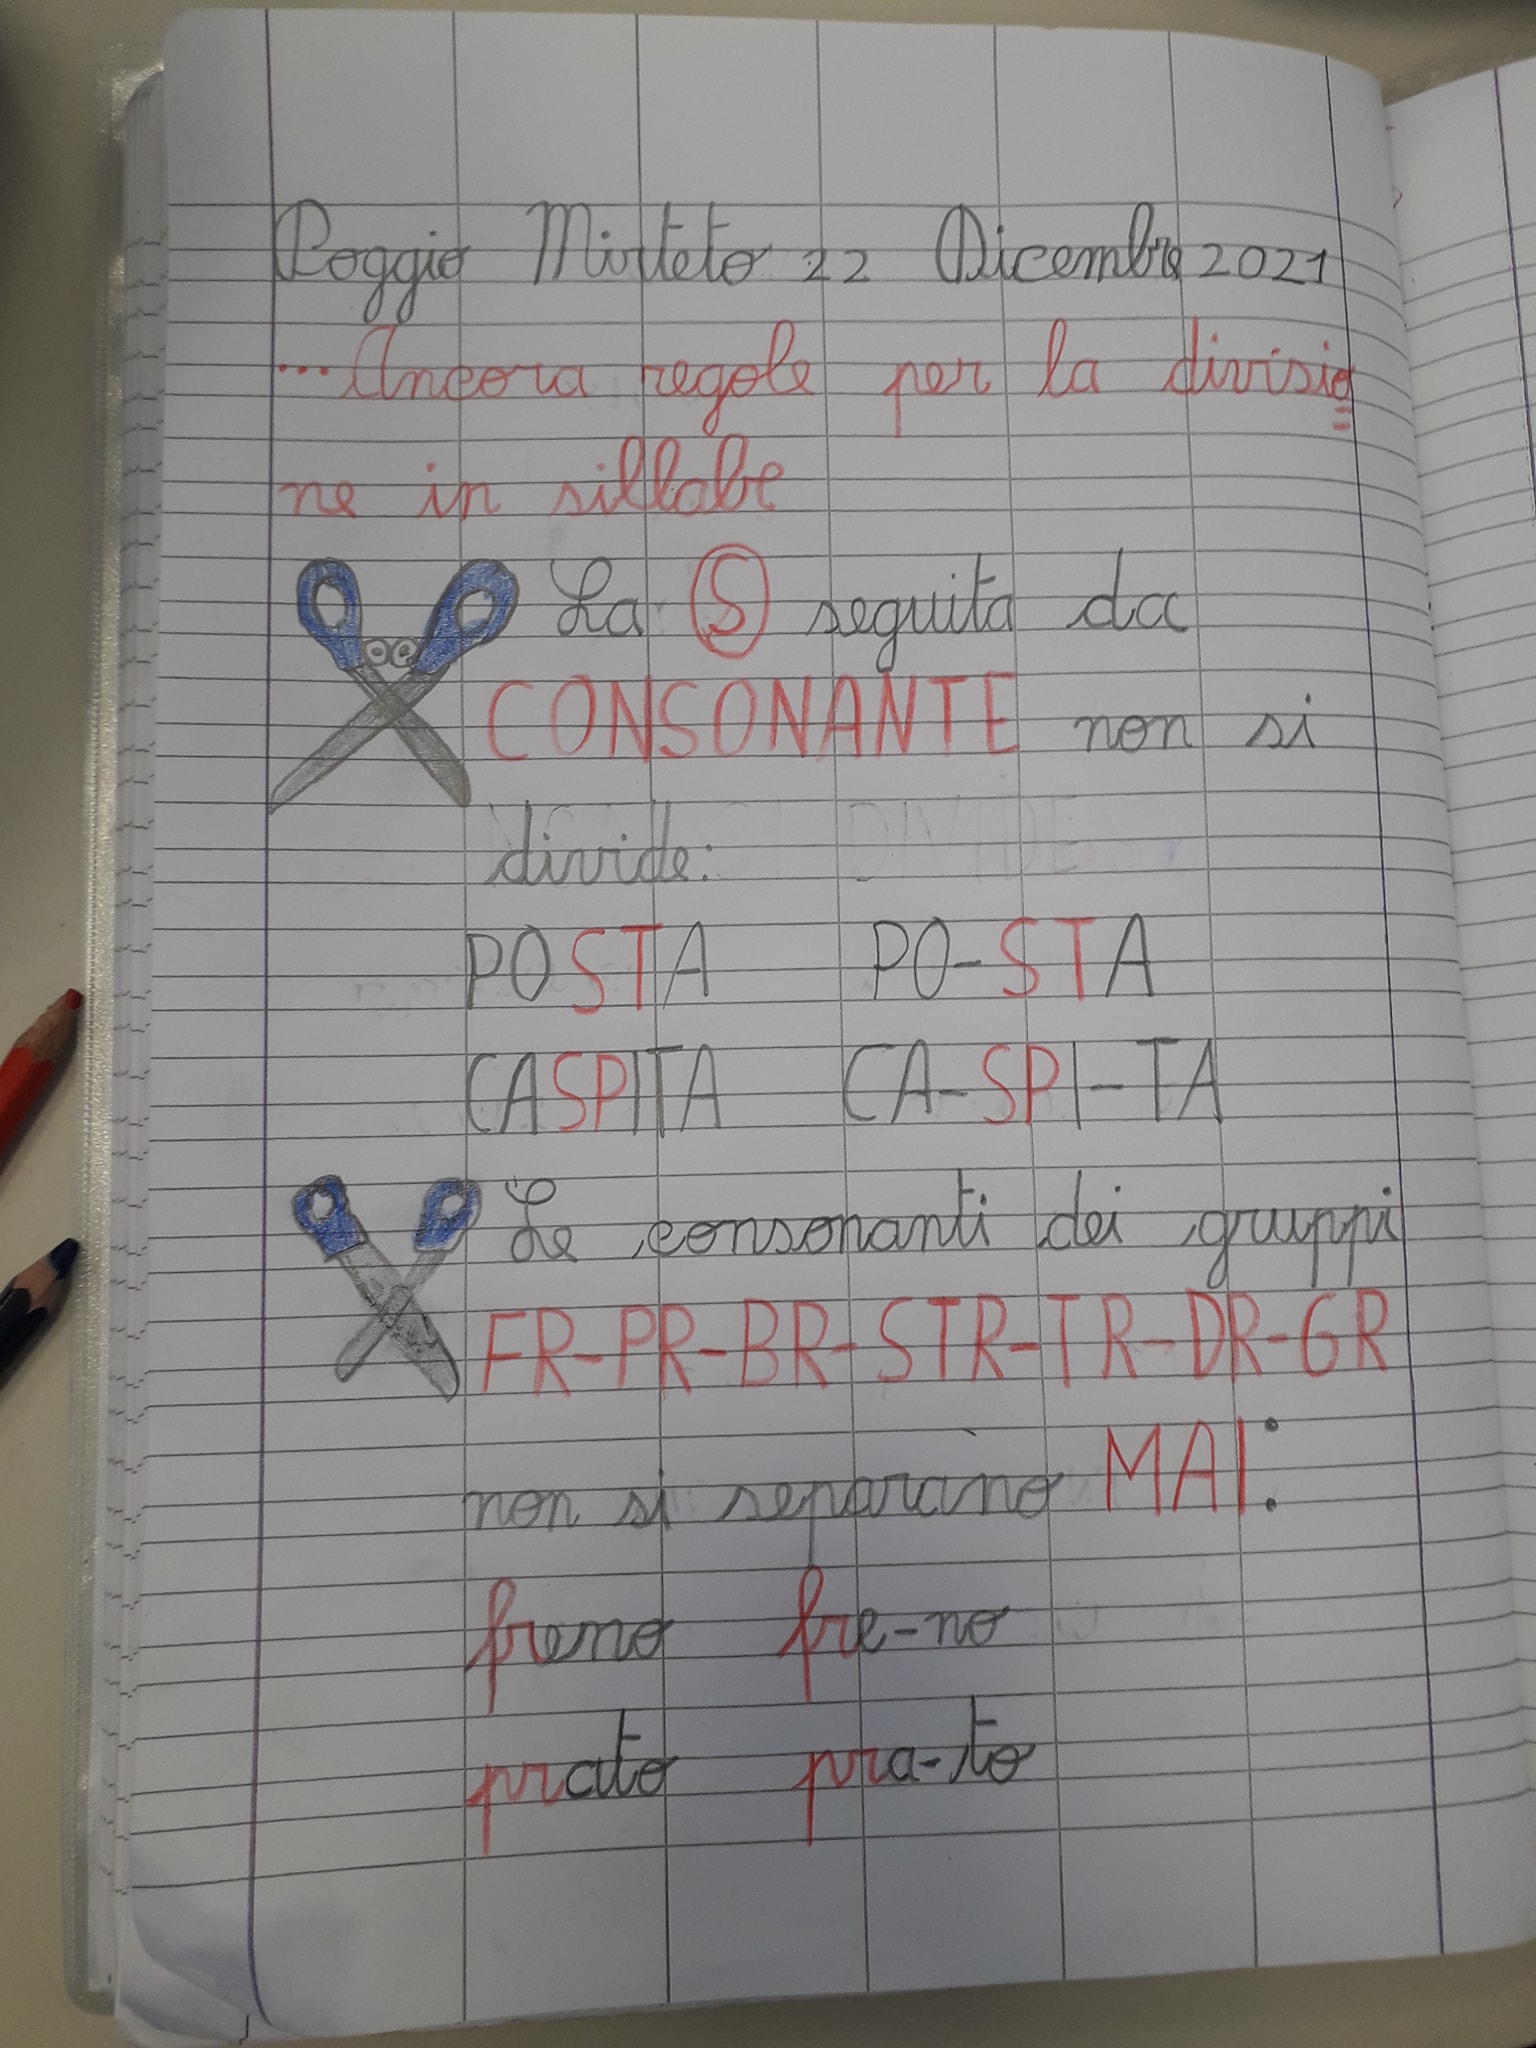 Poggio Mirteto 22 Dicembre 2021
...Ancora regole per la divisio
ne in sillabe
La S seguita da
CONSONANTE non si
divide:
POSTA PO-STA
CASPITA CA-SPI-TA
Le consonanti dei gruppi
FR-PR-BR-STR-TR-DR-GR
non si separano MAI:
freno fre-no
prato pra-to